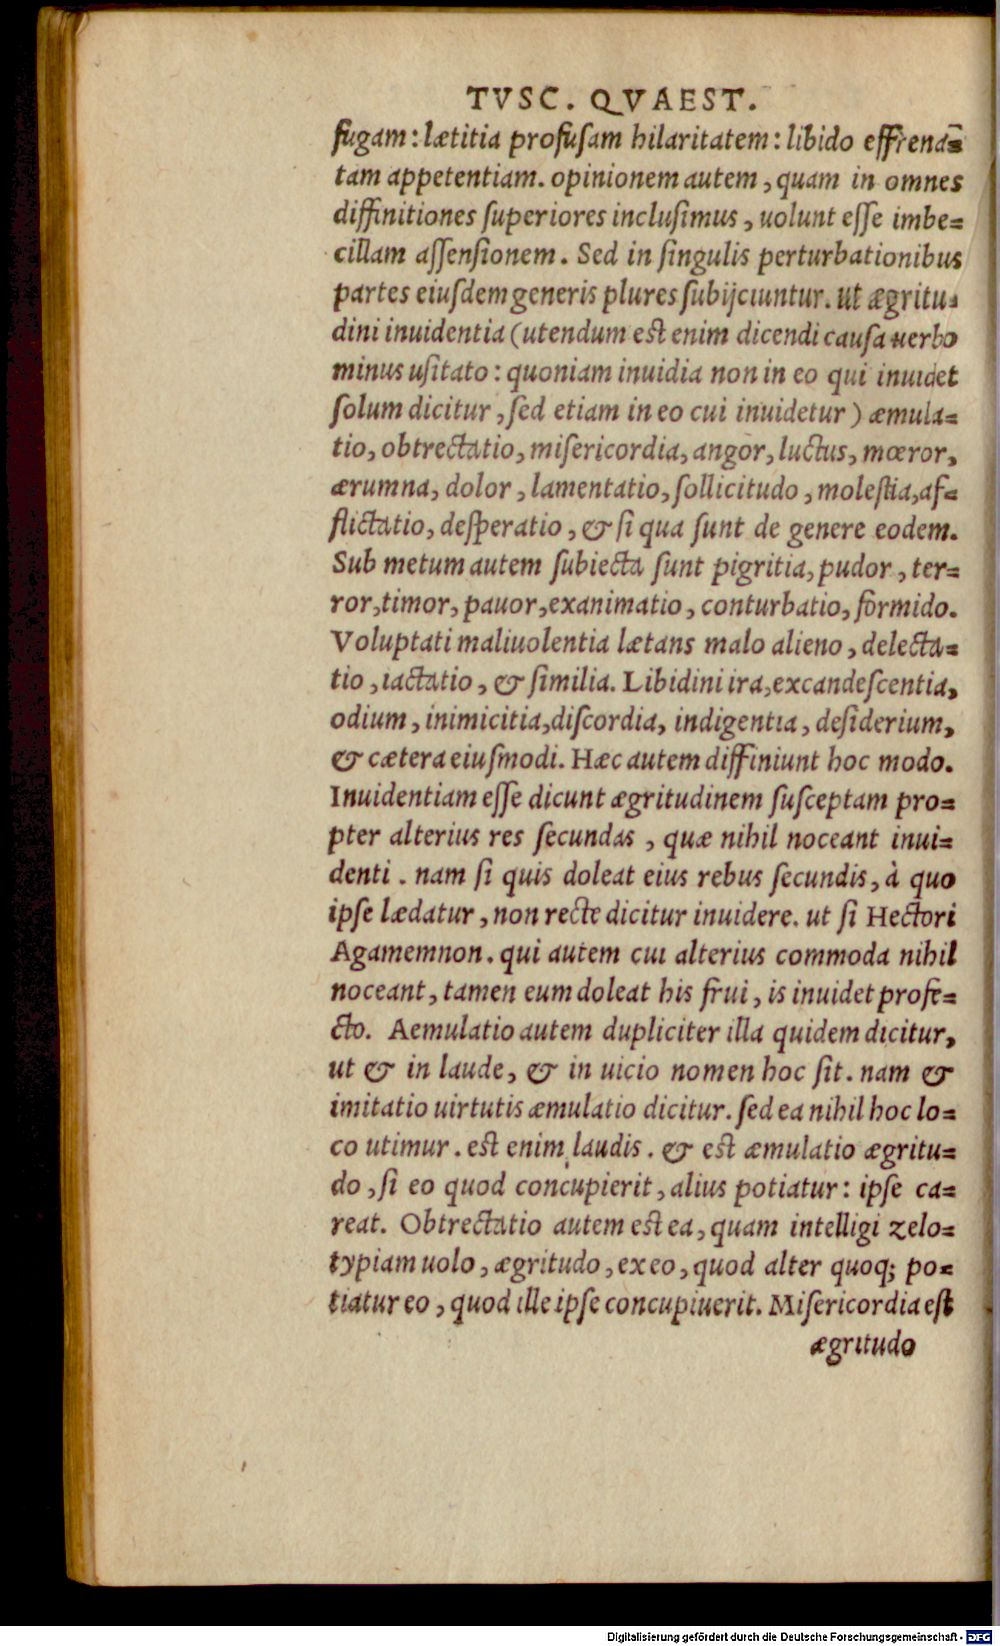 TVSC. QVAEST.
fugam: lætitia profuſam hilaritatem: libido effrena=
tam appetentiam. opinionem autem, quam in omnes
diffinitiones ſuperiores incluſimus, uolunt eſſe imbe=
cillam aſſenſionem. Sed in ſingulis perturbationibus
partes eiuſdem generis plures ſubijciuntur. ut ægritu=
dini inuidentia (utendum est enim dicendi cauſa uerbo
minus uſitato: quoniam inuidia non in eo qui inuidet
ſolum dicitur, ſed etiam in eo cui inuidetur) æmula=
tio, obtrectatio, miſericordia, angor, luctus, mœror,
ærumna, dolor, lamentatio, ſollicitudo, moleſtia, af=
flictatio, deſperatio, & ſi qua ſunt de genere eodem.
Sub metum autem ſubiecta ſunt pigritia, pudor, ter=
ror, timor, pauor, exanimatio, conturbatio, formido.
Voluptati maliuolentia lætans malo alieno, delecta=
tio, iactatio, & ſimilia. Libidini ira, excandeſcentia,
odium, inimicitia, diſcordia, indigentia, deſiderium,
& cætera eiuſmodi. Hæc autem diffiniunt hoc modo.
Inuidentiam eſſe dicunt ægritudinem ſuſceptam pro=
pter alterius res ſecundas, quæ nihil noceant inui=
denti. nam ſi quis doleat eius rebus ſecundis, à quo
ipſe lædatur, non recte dicitur inuidere. ut ſi Hectori
Agamemnon. qui autem cui alterius commoda nihil
noceant, tamen eum doleat his frui, is inuidet profe=
cto. Aemulatio autem dupliciter illa quidem dicitur,
ut & in laude, & in uicio nomen hoc ſit. nam &
imitatio uirtutis æmulatio dicitur. ſed ea nihil hoc lo=
co utimur. est enim laudis. & est æmulatio ægritu=
do, ſi eo quod concupierit, alius potiatur: ipſe ca=
reat. Obtrectatio autem est ea, quam intelligi zelo=
typiam uolo, ægritudo, ex eo, quod alter quoq; po=
tiatur eo, quod ille ipſe concupiuerit. Miſericordia eſt
ægritudo
Digitalisierung gefördert durch die Deutsche Forschungsgemeinschaft - DFG